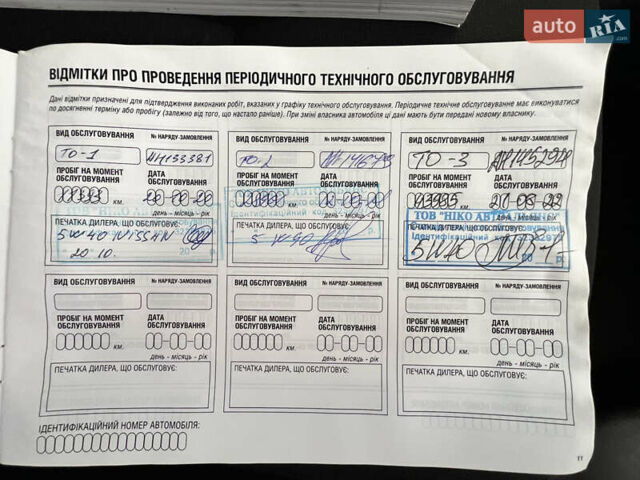 auto RIA.com
ВІДМІТКИ ПРО ПРОВЕДЕННЯ ПЕРІОДИЧНОГО ТЕХНІЧНОГО ОБСЛУГОВУВАННЯ
Дані відмітки призначені для підтвердження виконаних робіт, вказаних у графіку технічного обслуговування. Періодичне технічне обслуговування має виконуватися
по досягненні терміну або пробігу (залежно від того, що настало раніше). При зміні власника автомобіля ці дані мають бути передані новому власнику.
ВИД ОБСЛУГОВУВАННЯ № НАРЯДУ-ЗАМОВЛЕННЯ
ТО-1
ПРОБІГ НА МОМЕНТ ОБСЛУГОВУВАННЯ
ДАТА ОБСЛУГОВУВАННЯ
км.
день - місяць - рік
ПЕЧАТКА ДИЛЕРА, ЩО ОБСЛУГОВУЄ:
5W40 NISSAN
20.10.
ВИД ОБСЛУГОВУВАННЯ № НАРЯДУ-ЗАМОВЛЕННЯ
ТО-2
ПРОБІГ НА МОМЕНТ ОБСЛУГОВУВАННЯ
ДАТА ОБСЛУГОВУВАННЯ
км.
ПЕЧАТКА ДИЛЕРА, ЩО ОБСЛУГОВУЄ:
5W40
ВИД ОБСЛУГОВУВАННЯ № НАРЯДУ-ЗАМОВЛЕННЯ
ТО-3
ПРОБІГ НА МОМЕНТ ОБСЛУГОВУВАННЯ
ДАТА ОБСЛУГОВУВАННЯ
км.
день - місяць - рік
ТОВ "НІКО
ПЕЧАТКА ДИЛЕРА, ЩО ОБСЛУГОВУЄ:
Ідентифікаційний
5W40
ВИД ОБСЛУГОВУВАННЯ № НАРЯДУ-ЗАМОВЛЕННЯ
ПРОБІГ НА МОМЕНТ ОБСЛУГОВУВАННЯ
ДАТА ОБСЛУГОВУВАННЯ
км.
день - місяць - рік
ПЕЧАТКА ДИЛЕРА, ЩО ОБСЛУГОВУЄ:
ВИД ОБСЛУГОВУВАННЯ № НАРЯДУ-ЗАМОВЛЕННЯ
ПРОБІГ НА МОМЕНТ ОБСЛУГОВУВАННЯ
ДАТА ОБСЛУГОВУВАННЯ
км.
день - місяць - рік
ПЕЧАТКА ДИЛЕРА, ЩО ОБСЛУГОВУЄ:
ВИД ОБСЛУГОВУВАННЯ № НАРЯДУ-ЗАМОВЛЕННЯ
ПРОБІГ НА МОМЕНТ ОБСЛУГОВУВАННЯ
ДАТА ОБСЛУГОВУВАННЯ
км.
день - місяць - рік
ПЕЧАТКА ДИЛЕРА, ЩО ОБСЛУГОВУЄ:
ІДЕНТИФІКАЦІЙНИЙ НОМЕР АВТОМОБІЛЯ:
11